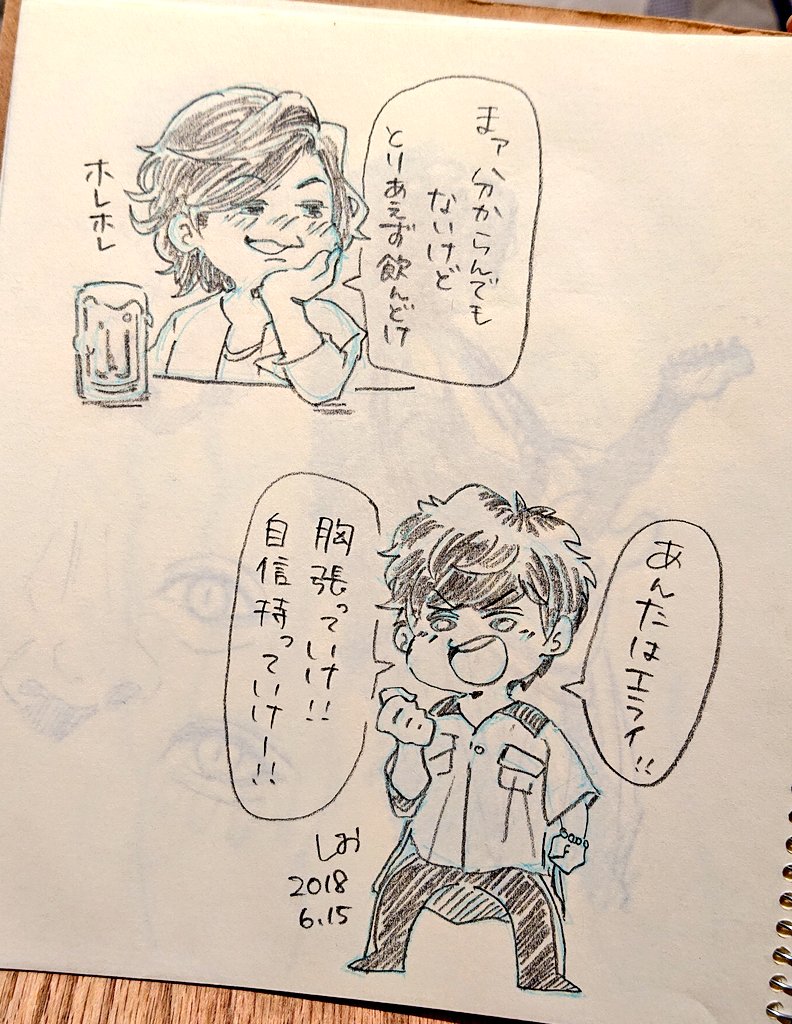 まァ分からんでも
ないけど
とりあえず飲んどけ
ホレホレ
あんたはエライ!!
胸張っていけ!!
自信持っていけー!!
しお
2018
6.15